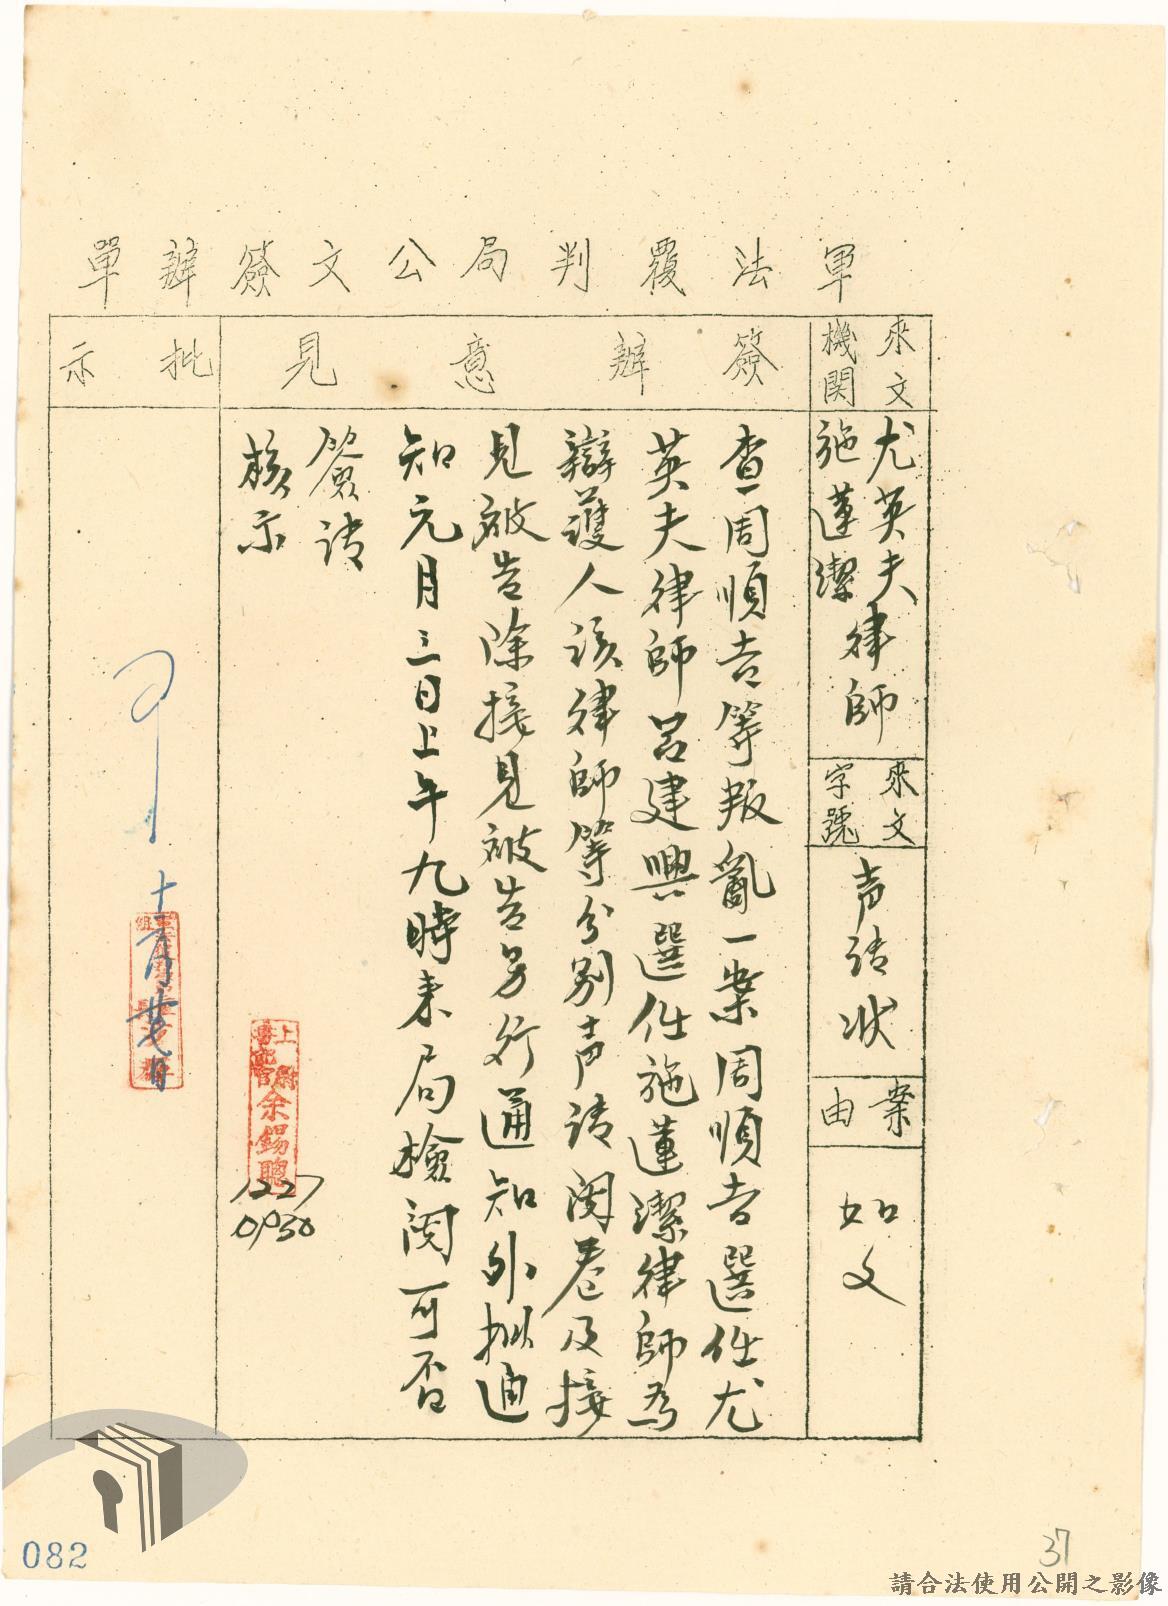 軍法覆判局公文簽辦單
來文機関
尤英夫
施蓮潔
律師
來文字號
声請狀
案由
如文
簽辦意見
查周順吉等叛亂一案周順吉選任尤
英夫律師呂建興選任施蓮潔律師為
辯護人該律師等分別声請閱卷及接
見被告除接見被告另行通知外擬通
知元月三日上午九時来局檢閱可否
簽請
核示
上尉書記官余錫聰
1227
0930
批示
可
十二月廿七日
082
37
請合法使用公開之影像